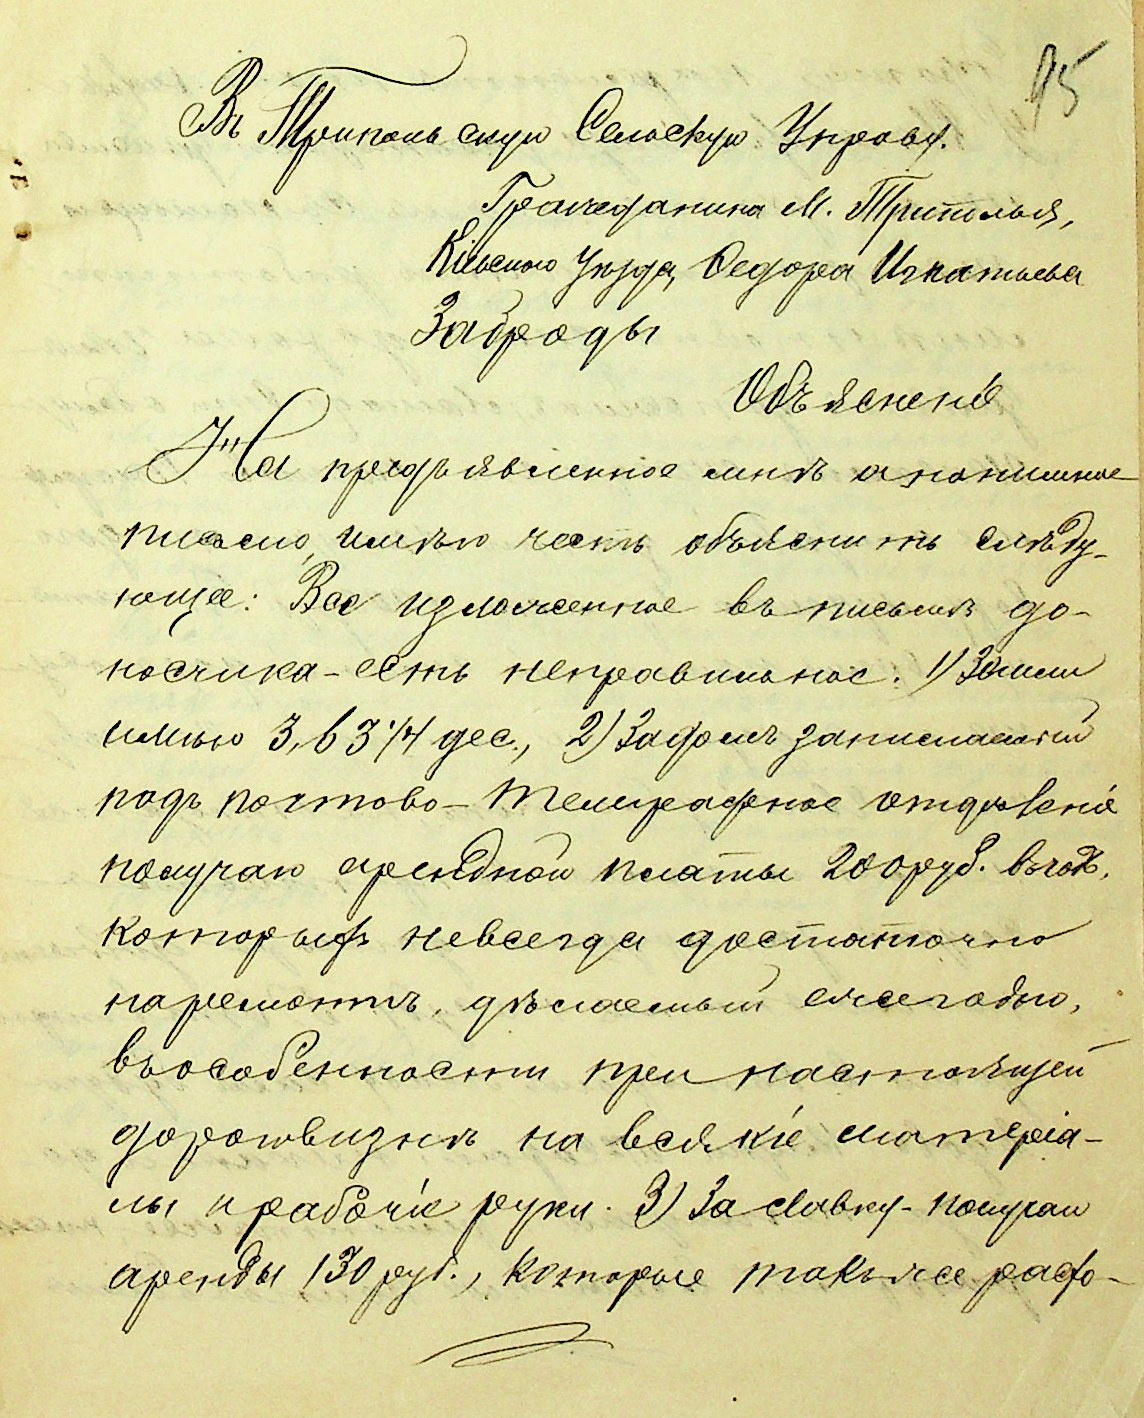 95
Въ Трипольскую Сельскую Управу.
Гражданина М. Триполья,
Кіевскаго Уѣзда, Федора Игнатьева
Заброды
Объясненіе
На предъявленное мнѣ анонимное
письмо, имѣю честь объяснить слѣду-
ющее: Все изложенное въ письмѣ до-
носчика - есть неправильное. 1) Земли
имѣю 3,63 1/4 дес., 2) За домъ занимаемый
подъ почтово-телеграфное отдѣленіе
получаю арендной платы 200 руб. въ годъ,
которыхъ невсегда достаточно
на ремонтъ, дѣлаемый ежегодно,
въ особенности при настоящей
дороговизнѣ на всякіе матеріа-
лы и рабочіе руки. 3) За лавку - получаю
аренды 130 руб., которые также расхо-